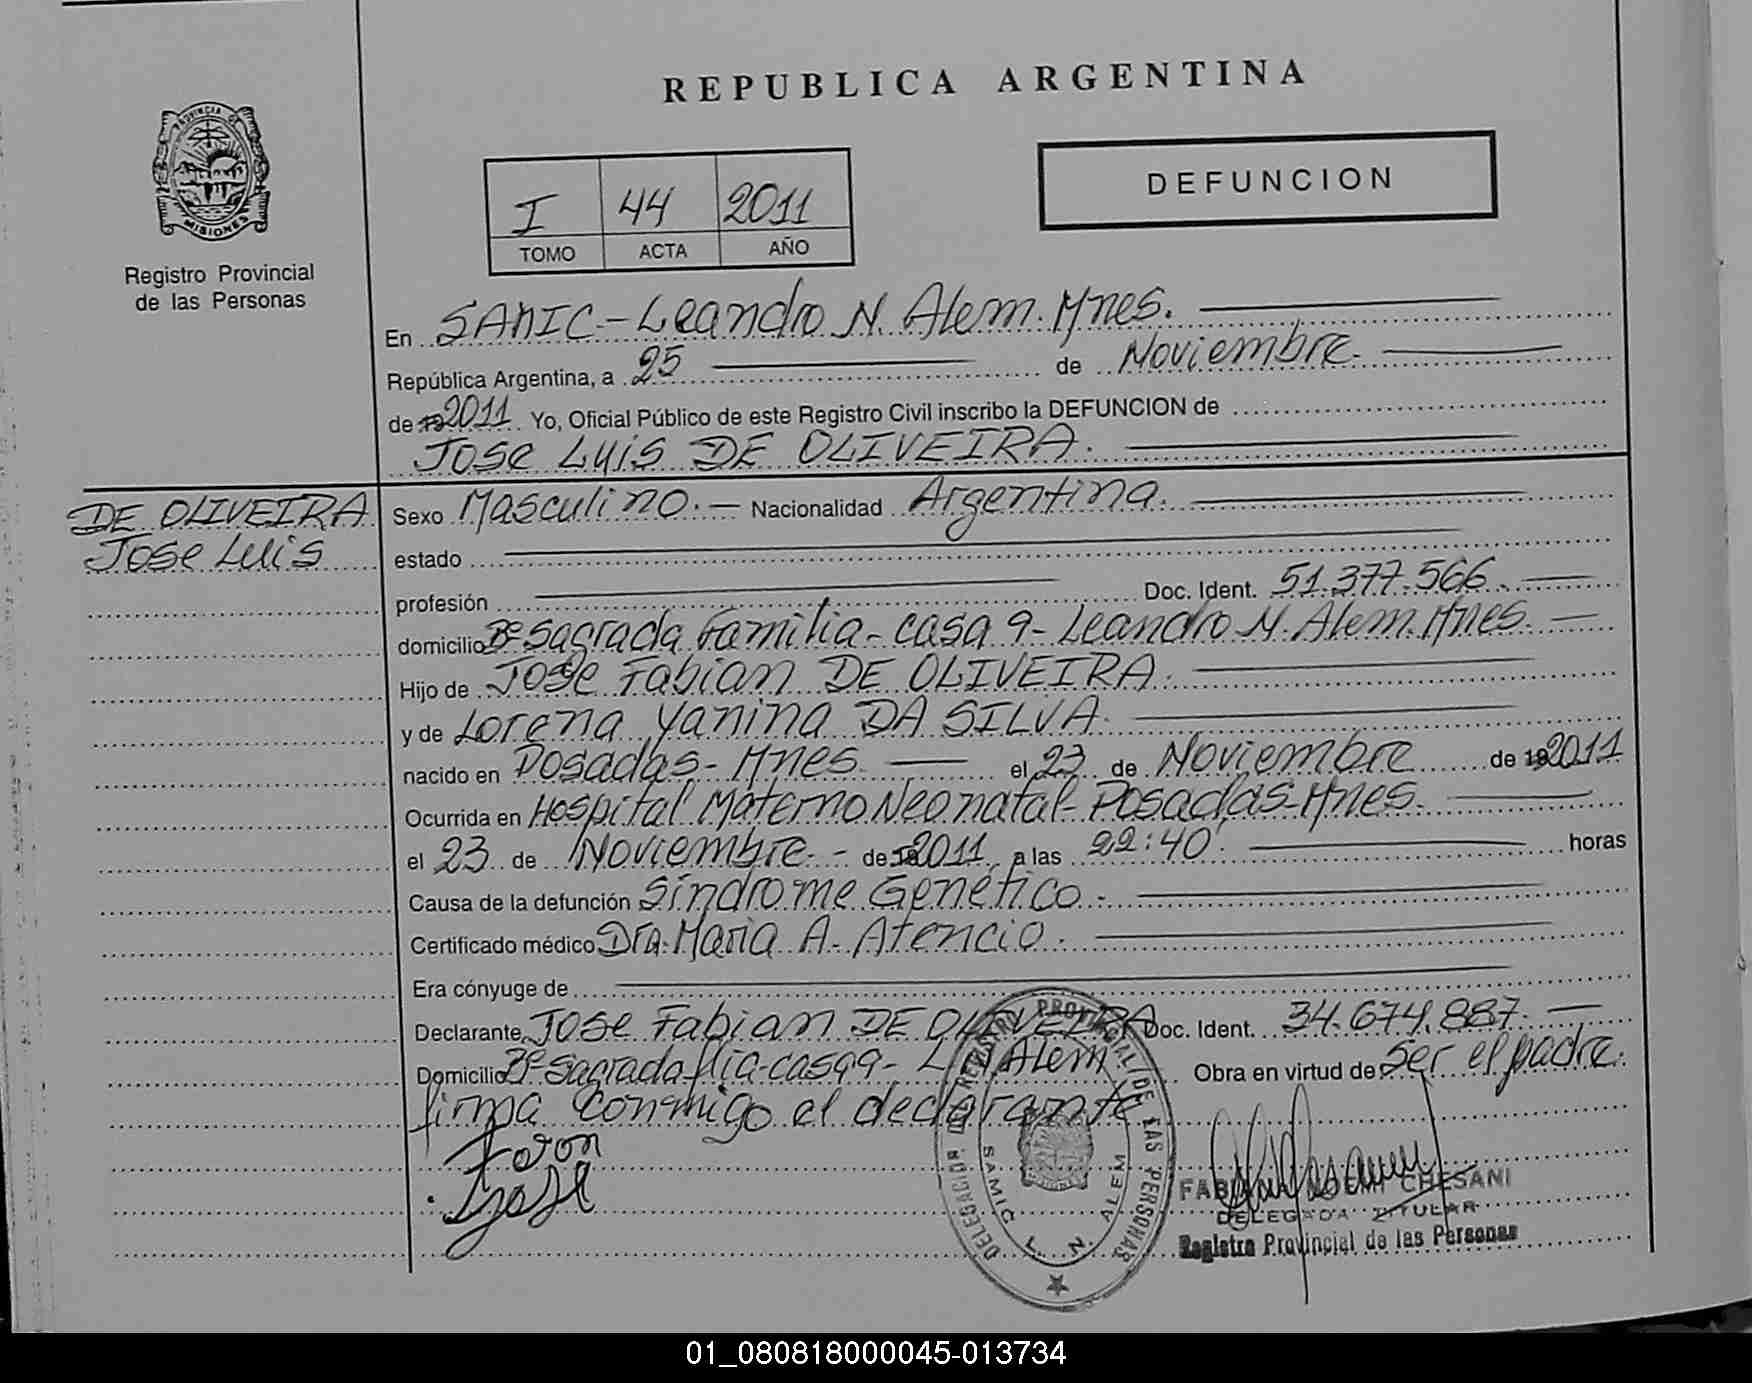 REPUBLICA ARGENTINA
PROVINCIA DE
MISIONES
Registro Provincial
de las Personas
I 44 2011
TOMO ACTA AÑO
DEFUNCION
En SAMIC - Leandro N. Alem. Mnes.
República Argentina, a 25 de Noviembre.
de 19 2011 Yo, Oficial Público de este Registro Civil inscribo la DEFUNCION de
JOSE LUIS DE OLIVEIRA.
DE OLIVEIRA
Jose Luis
Sexo Masculino. - Nacionalidad Argentina.
estado
profesión Doc. Ident. 51.377.566.
domicilio Bº Sagrada Familia - casa 9 - Leandro N. Alem. Mnes.
Hijo de Jose Fabian DE OLIVEIRA.
y de Lorena Yanina DA SILVA.
nacido en Posadas - Mnes. el 23 de Noviembre de 19 2011
Ocurrida en Hospital Materno Neonatal - Posadas - Mnes.
el 23 de Noviembre. - de 19 2011 a las 22:40'. horas
Causa de la defunción Síndrome Genético. -
Certificado médico Dra. Maria A. Atencio.
Era cónyuge de
Declarante Jose Fabian DE OLIVEIRA Doc. Ident. 34.674.887.
Domicilio Bº Sagrada flia - casa 9 - L N Alem Obra en virtud de Ser el padre.
firma conmigo el declarante
Jose
DELEGACION DEL REGISTRO PROVINCIAL DE LAS PERSONAS
SAMIC L. N. ALEM
MISIONES
FABIANA NOEMI CHESANI
DELEGADA TITULAR
Registro Provincial de las Personas
01_080818000045-013734